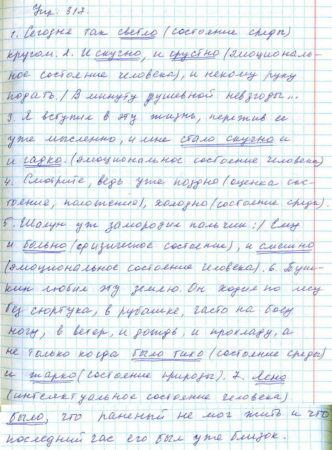 Упр. 317.
1. Сегодня так светло (состояние среды)
кругом. 2. И скучно, и грустно (эмоциональ-
ное состояние человека), и некому руку
подать / В минуту душевной невзгоды...
3. Я вступил в эту жизнь, пережив ее
уже мысленно, и мне стало скучно и
и гадко. (эмоциональное состояние человека)
4. Смотрите, ведь уже поздно (оценка сос-
тояние, положению), холодно (состояние среды).
5. Шалун уж заморозил пальчик:/ Ему
и больно (физическое состояние), и смешно
(эмоциональное состояние человека). 6. Пуш-
кин любил эту землю. Он ходил по лесу
без сюртука, в рубашке, часто на босу
ногу, в ветер, и дождь, и прохладу, а
не только когда было тихо (состояние среды)
и жарко (состояние природы). 7. Ясно
(интеллектуальное состояние человека)
было, что раненый не мог жить и что
последний час его был уже близок.